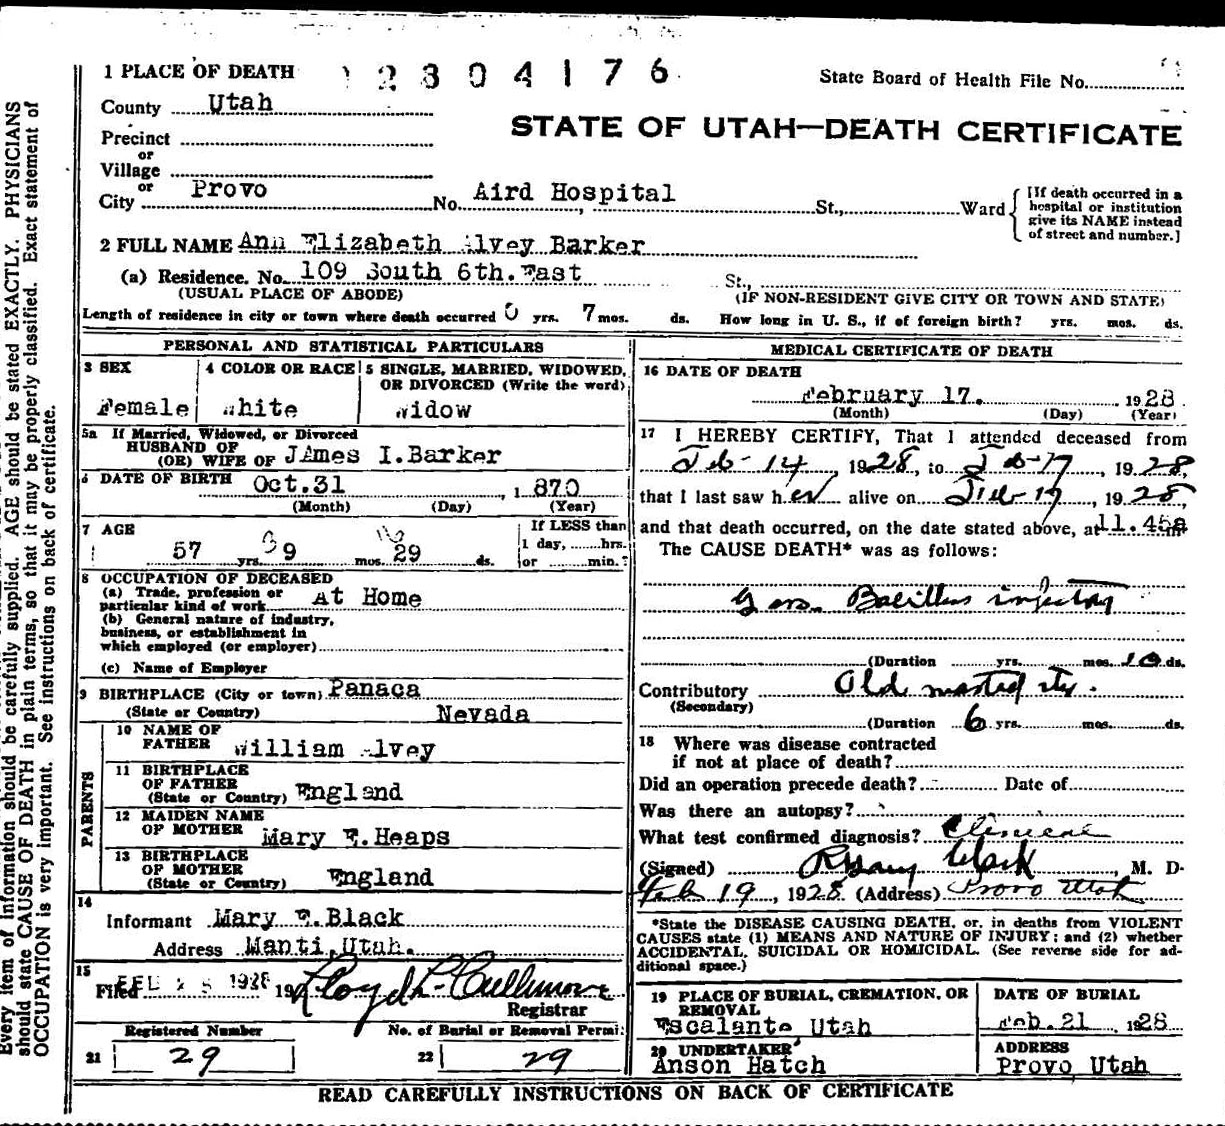 1 PLACE OF DEATH 12804176 State Board of Health File No.
County Utah
STATE OF UTAH—DEATH CERTIFICATE
Precinct
or
Village
or
City Provo No. Aird Hospital St., Ward
[If death occurred in a
hospital or institution
give its NAME instead
of street and number.]
2 FULL NAME Ann Elizabeth Alvey Barker
(a) Residence. No. 109 South 6th. East St.,
(USUAL PLACE OF ABODE) (IF NON-RESIDENT GIVE CITY OR TOWN AND STATE)
Length of residence in city or town where death occurred 0 yrs. 7 mos. ds. How long in U. S., if of foreign birth? yrs. mos. ds.
PERSONAL AND STATISTICAL PARTICULARS
3 SEX
Female
4 COLOR OR RACE
White
5 SINGLE, MARRIED, WIDOWED,
OR DIVORCED (Write the word)
Widow
5a If Married, Widowed, or Divorced
HUSBAND OF
(OR) WIFE OF JAmes I.Barker
6 DATE OF BIRTH Oct.31 , 1 870
(Month) (Day) (Year)
7 AGE
57 yrs. 9 mos. 29 ds.
If LESS than
1 day, hrs.
or min.?
8 OCCUPATION OF DECEASED
(a) Trade, profession or
particular kind of work At Home
(b) General nature of industry,
business, or establishment in
which employed (or employer)
(c) Name of Employer
9 BIRTHPLACE (City or town) Panaca
(State or Country) Nevada
PARENTS
10 NAME OF
FATHER William Alvey
11 BIRTHPLACE
OF FATHER
(State or Country) England
12 MAIDEN NAME
OF MOTHER Mary E.Heaps
13 BIRTHPLACE
OF MOTHER
(State or Country) England
14
Informant Mary E.Black
Address Manti,Utah.
15
Filed FEB 25 1928 19 Lloyd L. Cullimore
Registrar
Registered Number No. of Burial or Removal Permit
21 29 22 29
MEDICAL CERTIFICATE OF DEATH
16 DATE OF DEATH
February 17. 1928
(Month) (Day) (Year)
17 I HEREBY CERTIFY, That I attended deceased from
Feb-14, 1928, to Feb-17, 1928,
that I last saw her alive on Feb-17, 1928,
and that death occurred, on the date stated above, at 11.45a m
The CAUSE DEATH* was as follows:
Gas Bacillus infection
(Duration yrs. mos. 10 ds.
Contributory Old mastoiditis.
(Secondary)
(Duration 6 yrs. mos. ds.
18 Where was disease contracted
if not at place of death?
Did an operation precede death? Date of
Was there an autopsy?
What test confirmed diagnosis? Clinical
(Signed) Clark, M. D-
Feb 19, 1928 (Address) Provo Utah
*State the DISEASE CAUSING DEATH, or, in deaths from VIOLENT
CAUSES state (1) MEANS AND NATURE OF INJURY; and (2) whether
ACCIDENTAL, SUICIDAL OR HOMICIDAL. (See reverse side for ad-
ditional space.)
19 PLACE OF BURIAL, CREMATION, OR
REMOVAL
Escalante Utah
DATE OF BURIAL
Feb.21, 1928
20 UNDERTAKER
Anson Hatch
ADDRESS
Provo Utah
READ CAREFULLY INSTRUCTIONS ON BACK OF CERTIFICATE
Every item of information should be carefully supplied. AGE should be stated EXACTLY. PHYSICIANS
should state CAUSE OF DEATH in plain terms, so that it may be properly classified. Exact statement of
OCCUPATION is very important. See instructions on back of certificate.